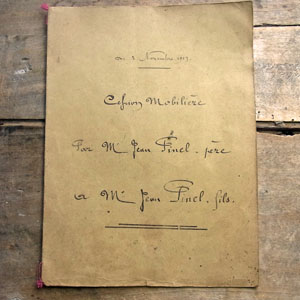 Novembre
Cession Mobilière
Par Mr Jean Pinel - père
a Mr Jean Pinel - fils.